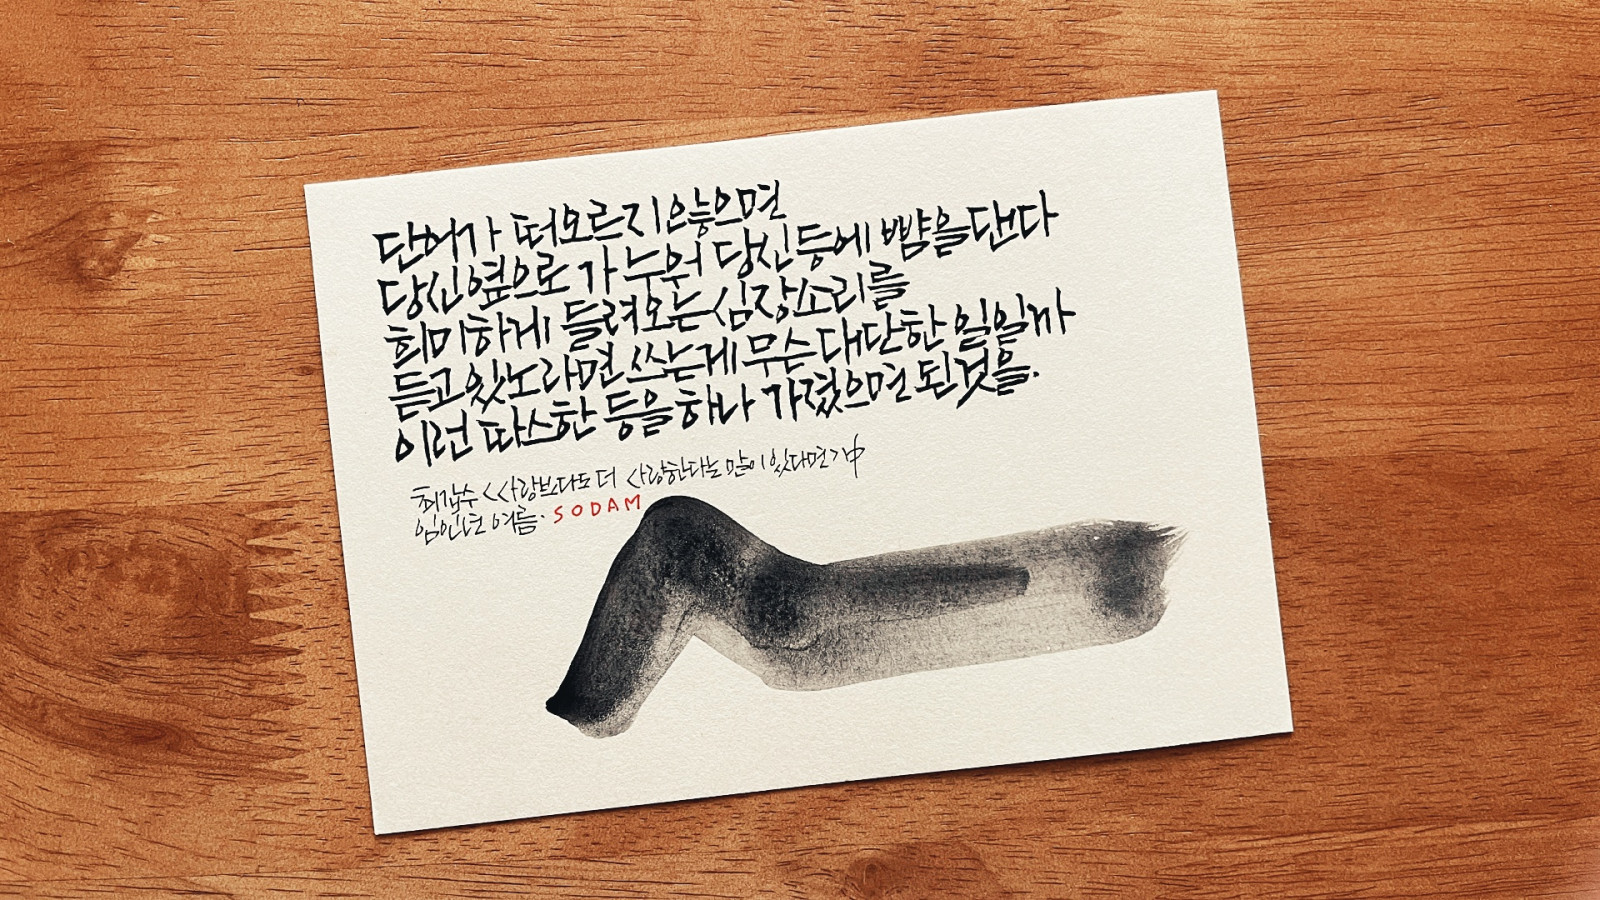 단어가 떠오르지 않으면
당신 옆으로 가 누워 당신 등에 뺨을 댄다
희미하게 들려오는 심장소리를
듣고 있노라면 쓰는게 무슨 대단한 일일까
이런 따스한 등을 하나 가졌으면 된것을.
최갑수 <<사랑보다도 더 사랑한다는 말이 있다면>> 中
임인년 여름. SODAM